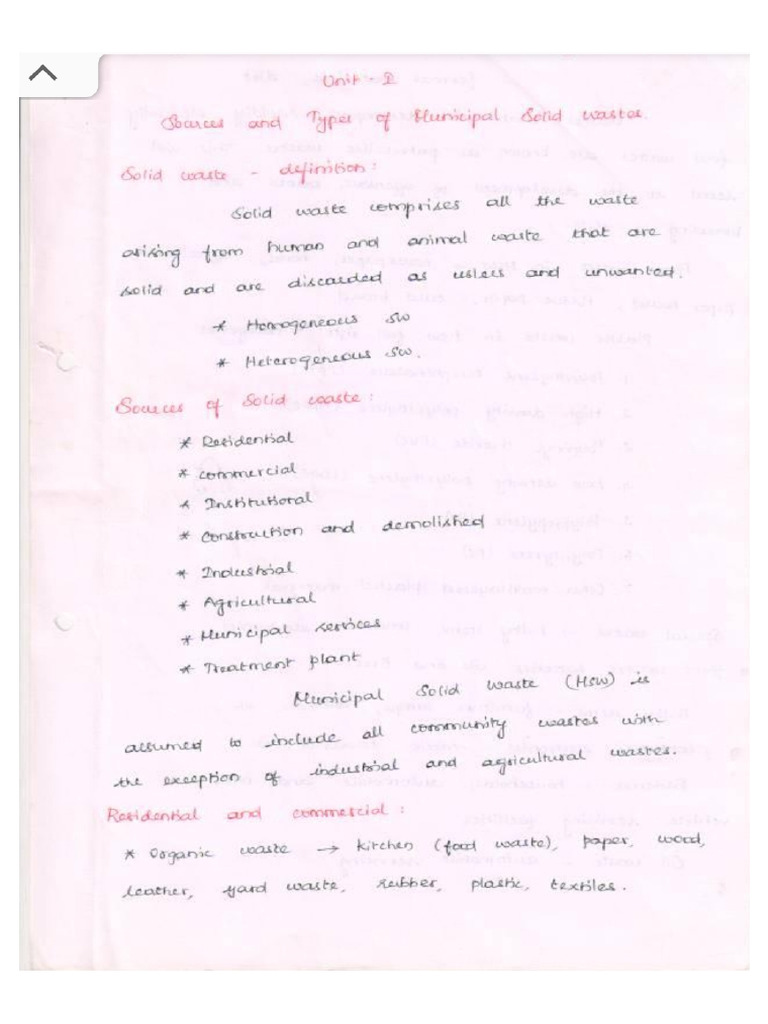 Unit - I
Sources and Types of Municipal Solid wastes.
Solid waste - definition :
Solid waste comprises all the waste
arising from human and animal waste that are
solid and are discarded as usless and unwanted.
* Homogeneous SW
* Heterogeneous SW.
Sources of Solid waste :
* Residential
* commercial
* Institutional
* Construction and demolished
* Industrial
* Agricultural
* Municipal services
* Treatment plant
Municipal Solid waste (MSW) is
assumed to include all community wastes with
the exception of industrial and agricultural wastes.
Residential and commercial :
* Organic waste → kitchen (food waste), paper, wood,
leather, yard waste, rubber, plastic, textiles.